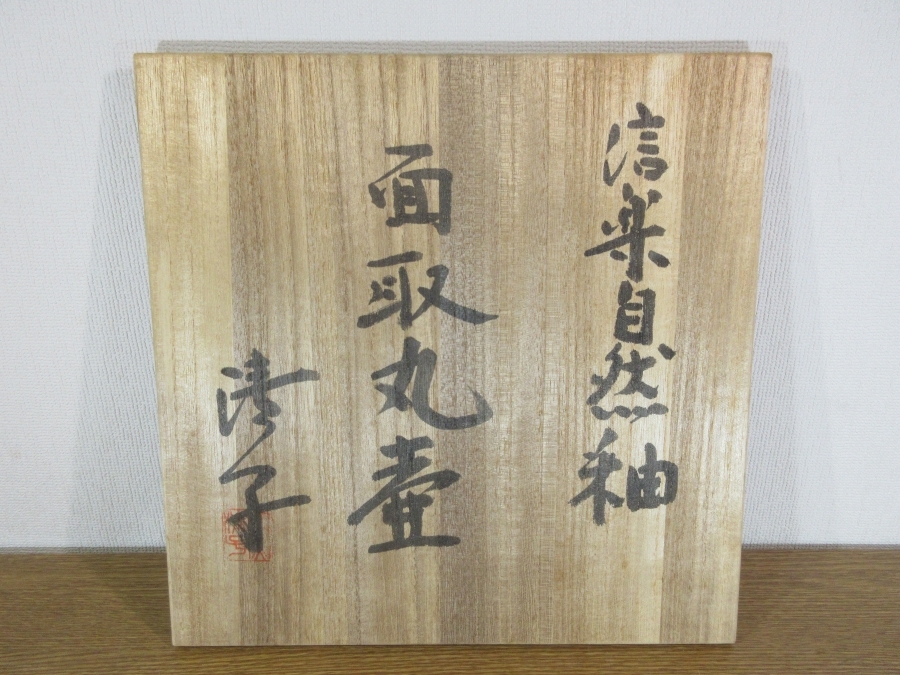 信楽自然釉
面取丸壷
清子